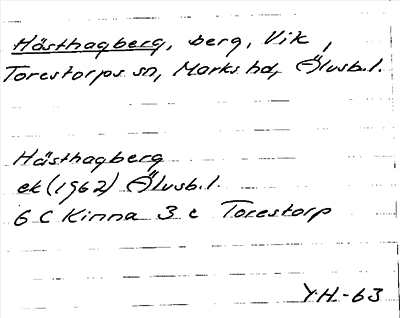 Hästhagberg, berg, Vik,
Torestorps sn, Marks hd, Älvsb. l.
Hästhagberg
ek (1962) Älvsb. l.
6 C Kinna 3 c Torestorp
Y.H.-63